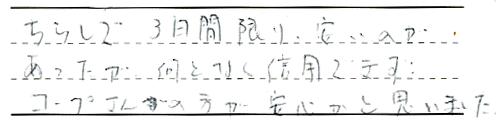 ちらしで 3日間限り、安いのが
あったが 何となく信用できず
コープさんの方が安心かと思いました